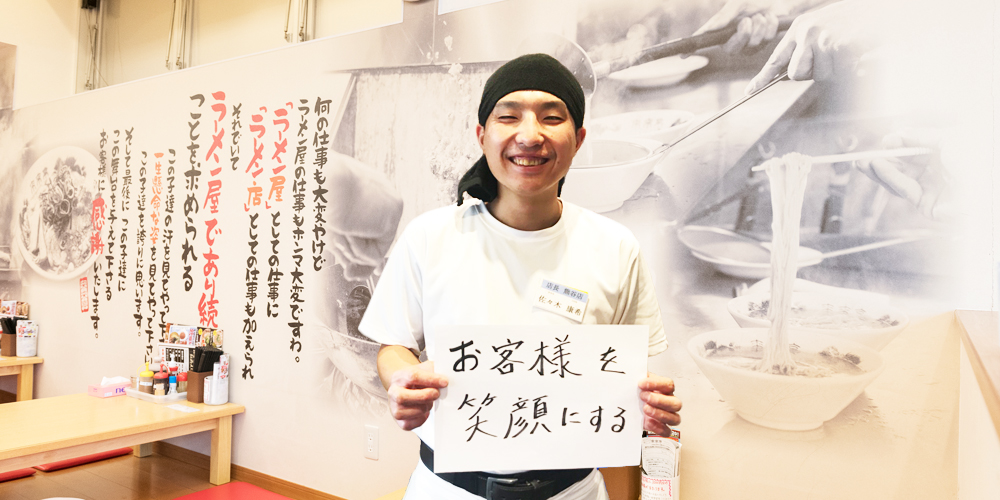 何の仕事も大変やけど
ラーメン屋の仕事もホンマ大変ですわ。
「ラーメン屋」としての仕事に
「ラーメン店」としての仕事もかえられ
それでいて
ラーメン屋であり続
ことを求められる
この子達の汗を見てやって下
一生懸命な姿を見てやって下さ
この子達を誇りに思います。
そして最後に、この子達に
この舞台を与えて下さる
お客様に感謝いたします。
店長 熊谷店
佐々木
お客様を
笑顔にする